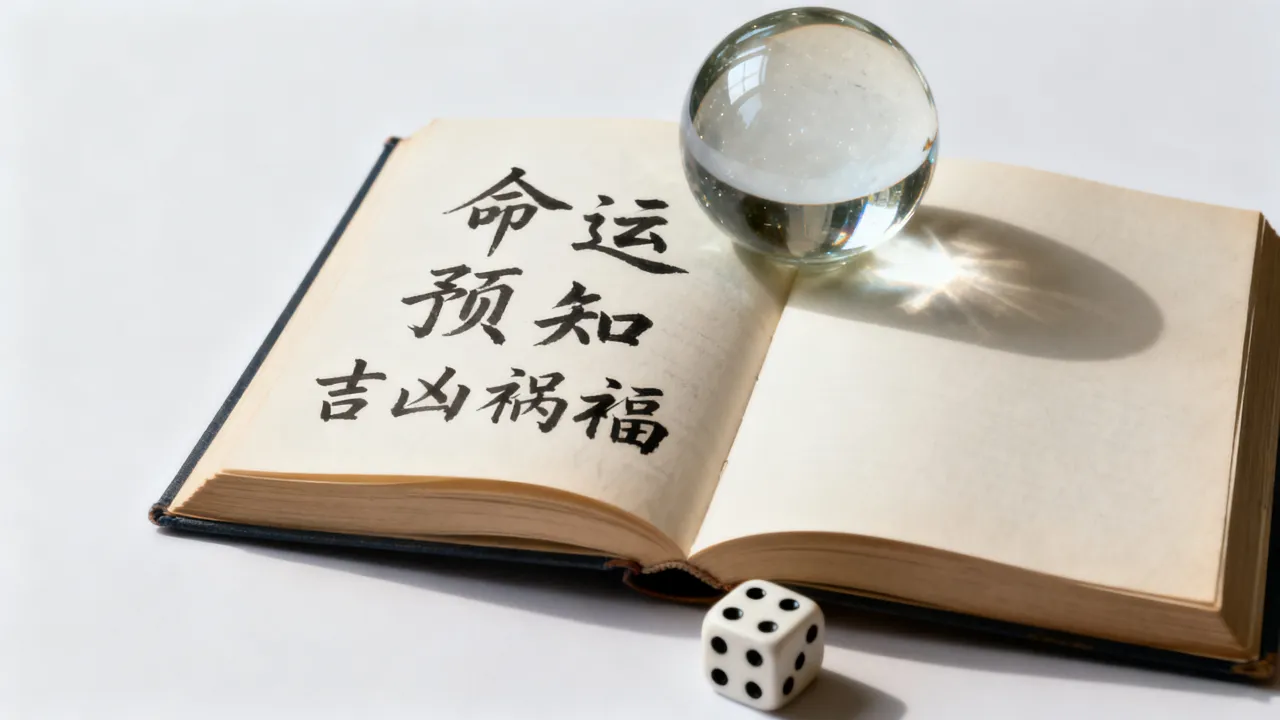 命运
预知
吉凶祸福